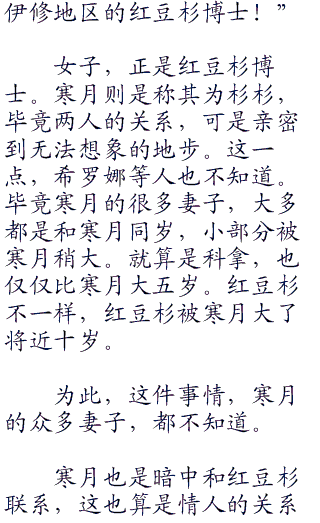 伊修地区的红豆杉博士！”
女子，正是红豆杉博
士。寒月则是称其为杉杉，
毕竟两人的关系，可是亲密
到无法想象的地步。这一
点，希罗娜等人也不知道。
毕竟寒月的很多妻子，大多
都是和寒月同岁，小部分被
寒月稍大。就算是科拿，也
仅仅比寒月大五岁。红豆杉
不一样，红豆杉被寒月大了
将近十岁。
为此，这件事情，寒月
的众多妻子，都不知道。
寒月也是暗中和红豆杉
联系，这也算是情人的关系